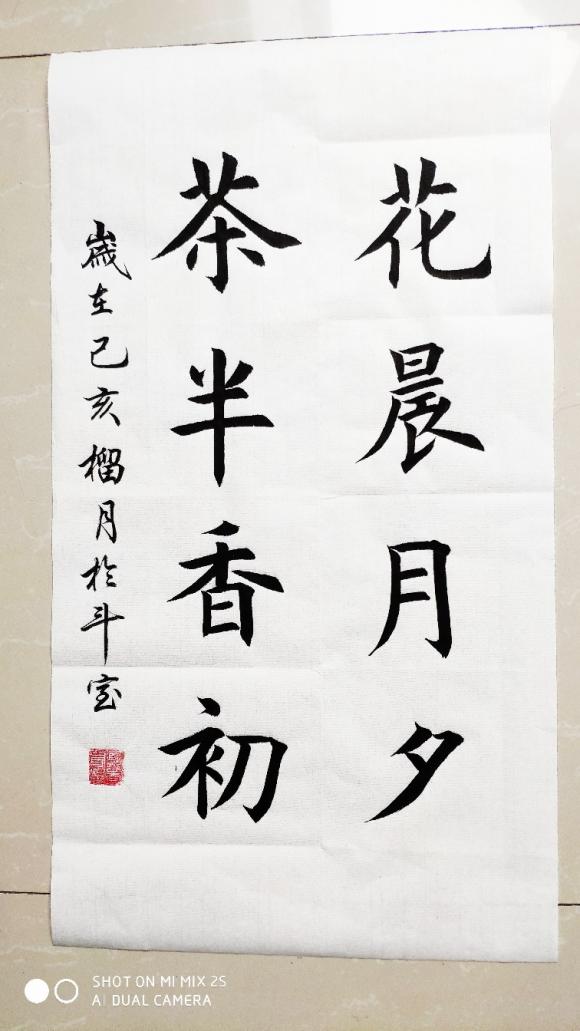 花晨月夕
茶半香初
歲在己亥榴月於斗室
SHOT ON MI MIX 2S
AI DUAL CAMERA